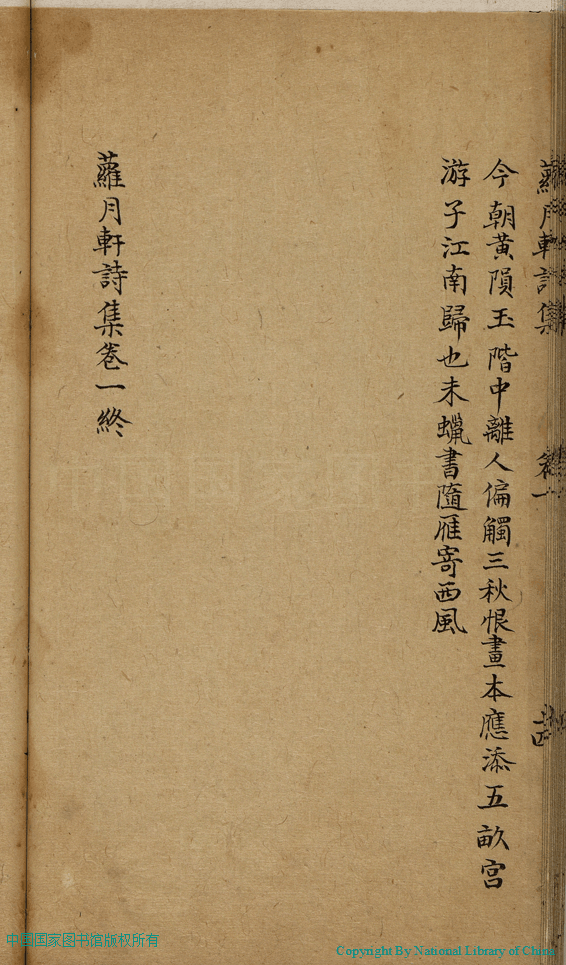 蘿月軒詩集
卷一
今朝黄隕玉階中離人偏觸三秋恨畫本應添五畝宫
游子江南歸也未蠟書隨雁寄西風
蘿月軒詩集卷一終
中国国家图书馆版权所有
Copyright By National Library of China.